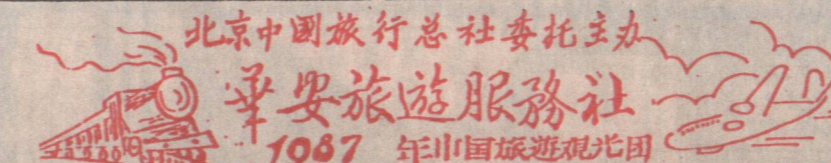 北京中國旅行总社委托主办
華安旅遊服務社
1987 年中国旅遊观光团